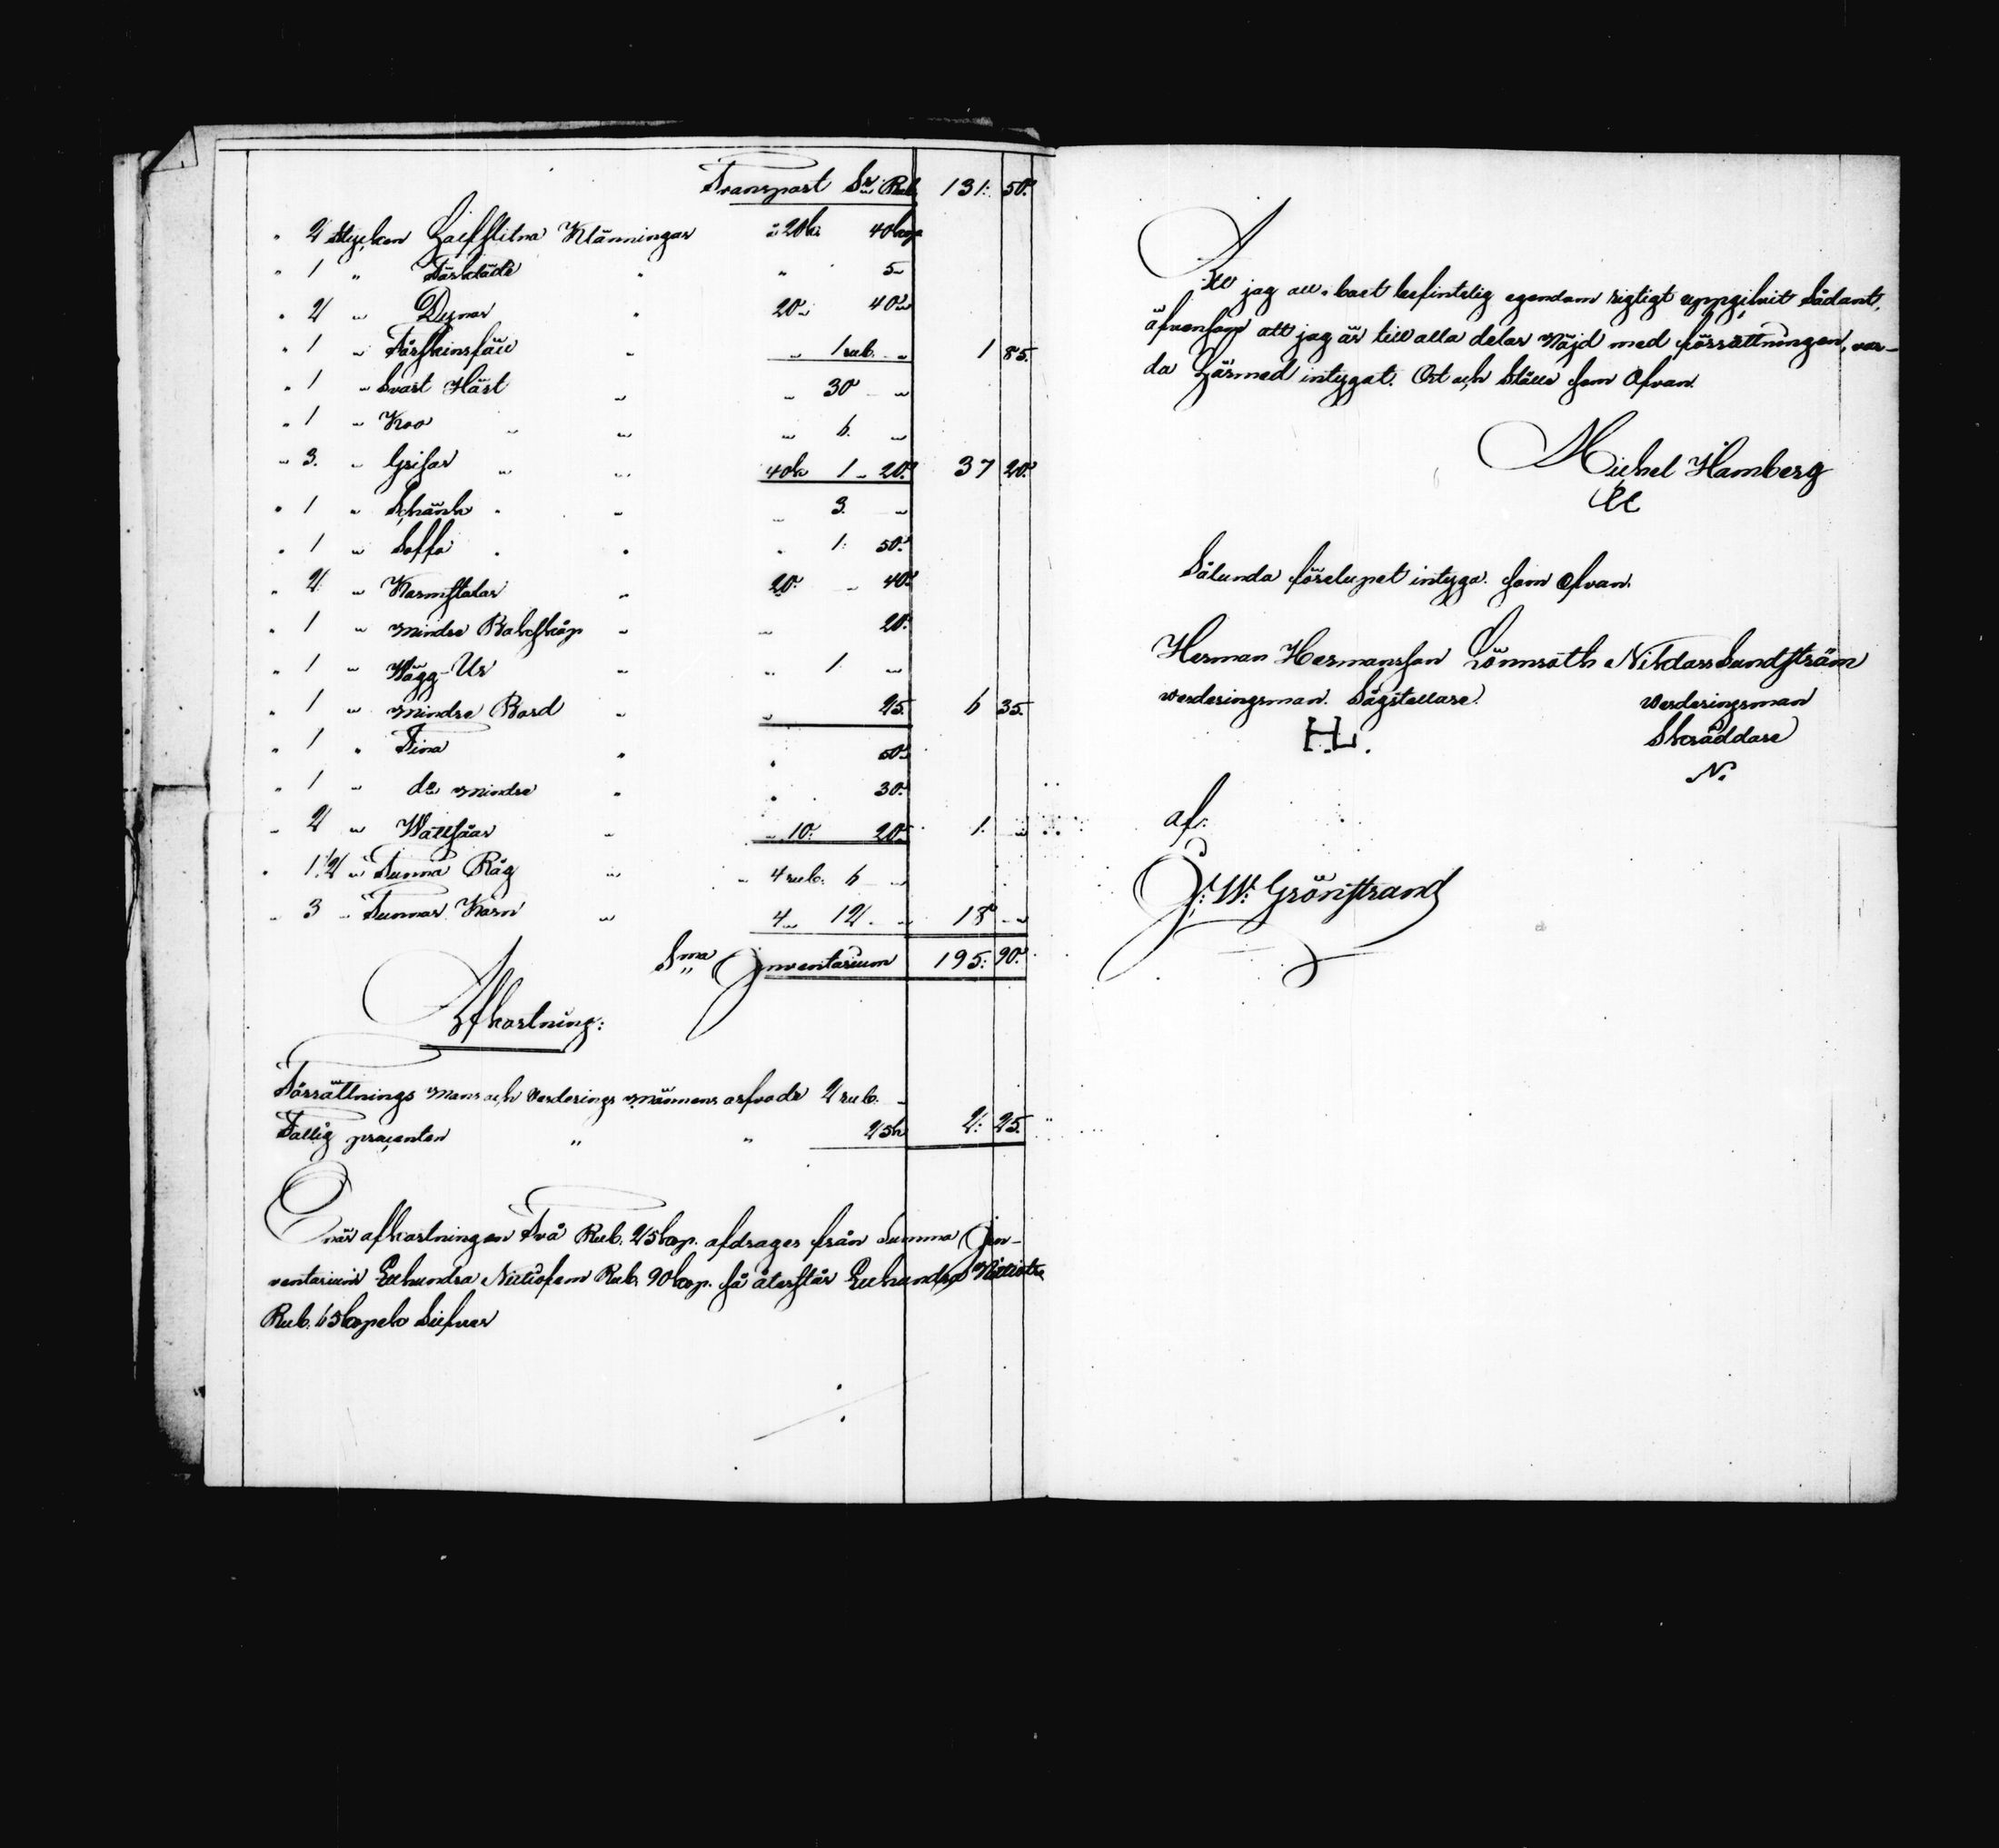 Transport S:r Rub. 131: 50:
" 2 stycken halfslitna Klänningar à 20 k: 40 kop
" 1 " Förkläde " " 5 "
" 2 " Dynor " 20 " 40 "
" 1 " Fårskinsfäll " " 1 rub. " 1 85.
" 1 " Svart Häst " " 30 "
" 1 " Koo " " " 6. "
" 3. " Grisar " " 40 k 1 " 20: 37 20:
" 1 " Schänk " " " 3. "
" 1 " Soffa " " " 1: 50:
" 2 " Karmstolar " 20: " 40:
" 1 " mindre Bakskåp " " 20:
" 1 " Wägg-Ur " " 1: "
" 1 " mindre Bord " " 25. 6 35.
" 1 " Tina " " 50 "
" 1 " d:o mindre " " 30:
" 2 " Wattsåar " " 10: 20: 1: "
" 1 1/2 " Tunna Råg " " 4 rub. 6 "
" 3 " Tunnor Korn " 4 " 12 " " 18 " "
S:ma Inventarium 195: 90:
Afkortning:
Förrättnings mans och Verderings männens arfvode 2 rub. "
Fattig procenten " " 25 k 2: 25.
När afkortningen Två Rub. 25 kop. afdrages från Summa In-
ventarium Etthundra Nittiofem Rub. 90 kop. så återstår Etthundra Nittiotre
Rub. 65 kopek Silfver
At jag all i boet befintelig egendom rigtigt uppgifvit sådant,
äfvensom att jag är till alla delar Nöjd med förrättningen, var-
da härmed intygat. Ort och Ställe som Ofvan.
Michel Hamberg
Sålunda förelupet intyga som Ofvan.
Herman Hermansson Lönnroth Niklas Sundström
Verderingsman. Sågställare. Verderingsman
HL. Skräddare
N.
af:
G: W: Grönstrand